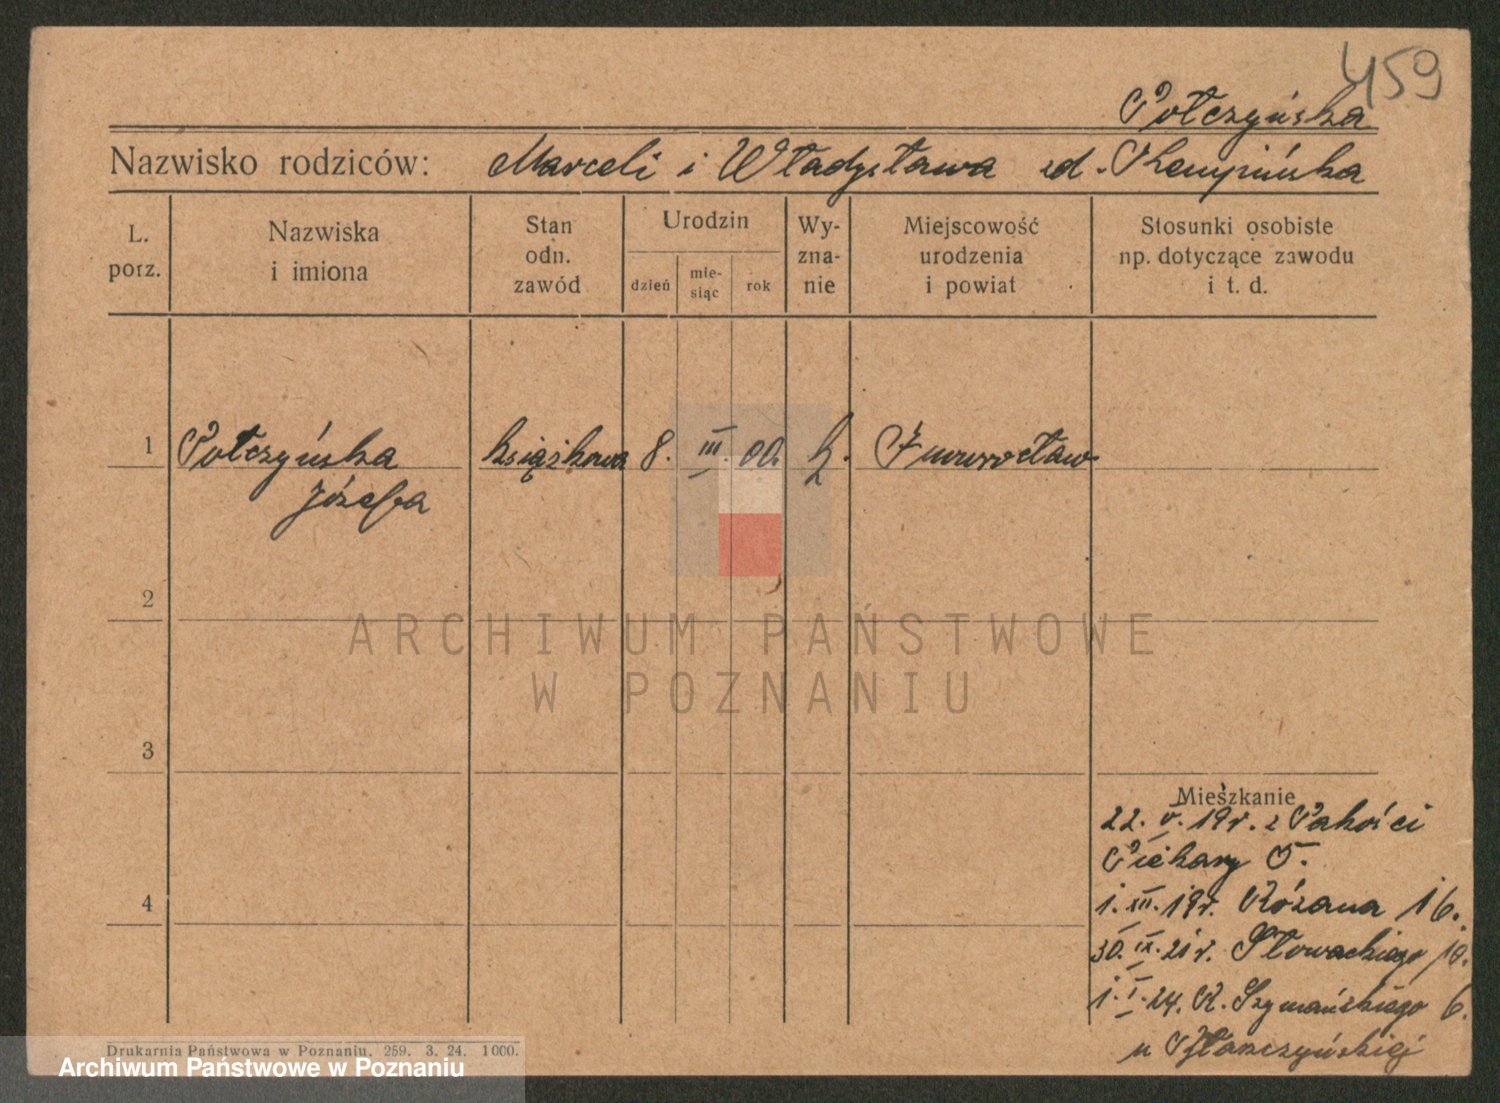 459
Połczyńska
Nazwisko rodziców: Marceli i Władysława zd.
L. porz.
Nazwiska i imiona
Stan odn. zawód
Urodzin
dzień
mie-siąc
rok
Wy-zna-nie
Miejscowość urodzenia i powiat
Stosunki osobiste np. dotyczące zawodu i t. d.
1 Połczyńska książkowa 8. III. 00. k. Inowrocław
Józefa
2
ARCHIWUM PAŃSTWOWE
W POZNANIU
3
Mieszkanie
22. V. 19r. z Pakości
Piekary
4
1. XII. 19r. Różana 16.
30. IX. 21r. Słowackiego
1. I. 24. R. Szymańskiego 6.
u
Drukarnia Państwowa w Poznaniu. 259. 3. 24. 1000.
Archiwum Państwowe w Poznaniu